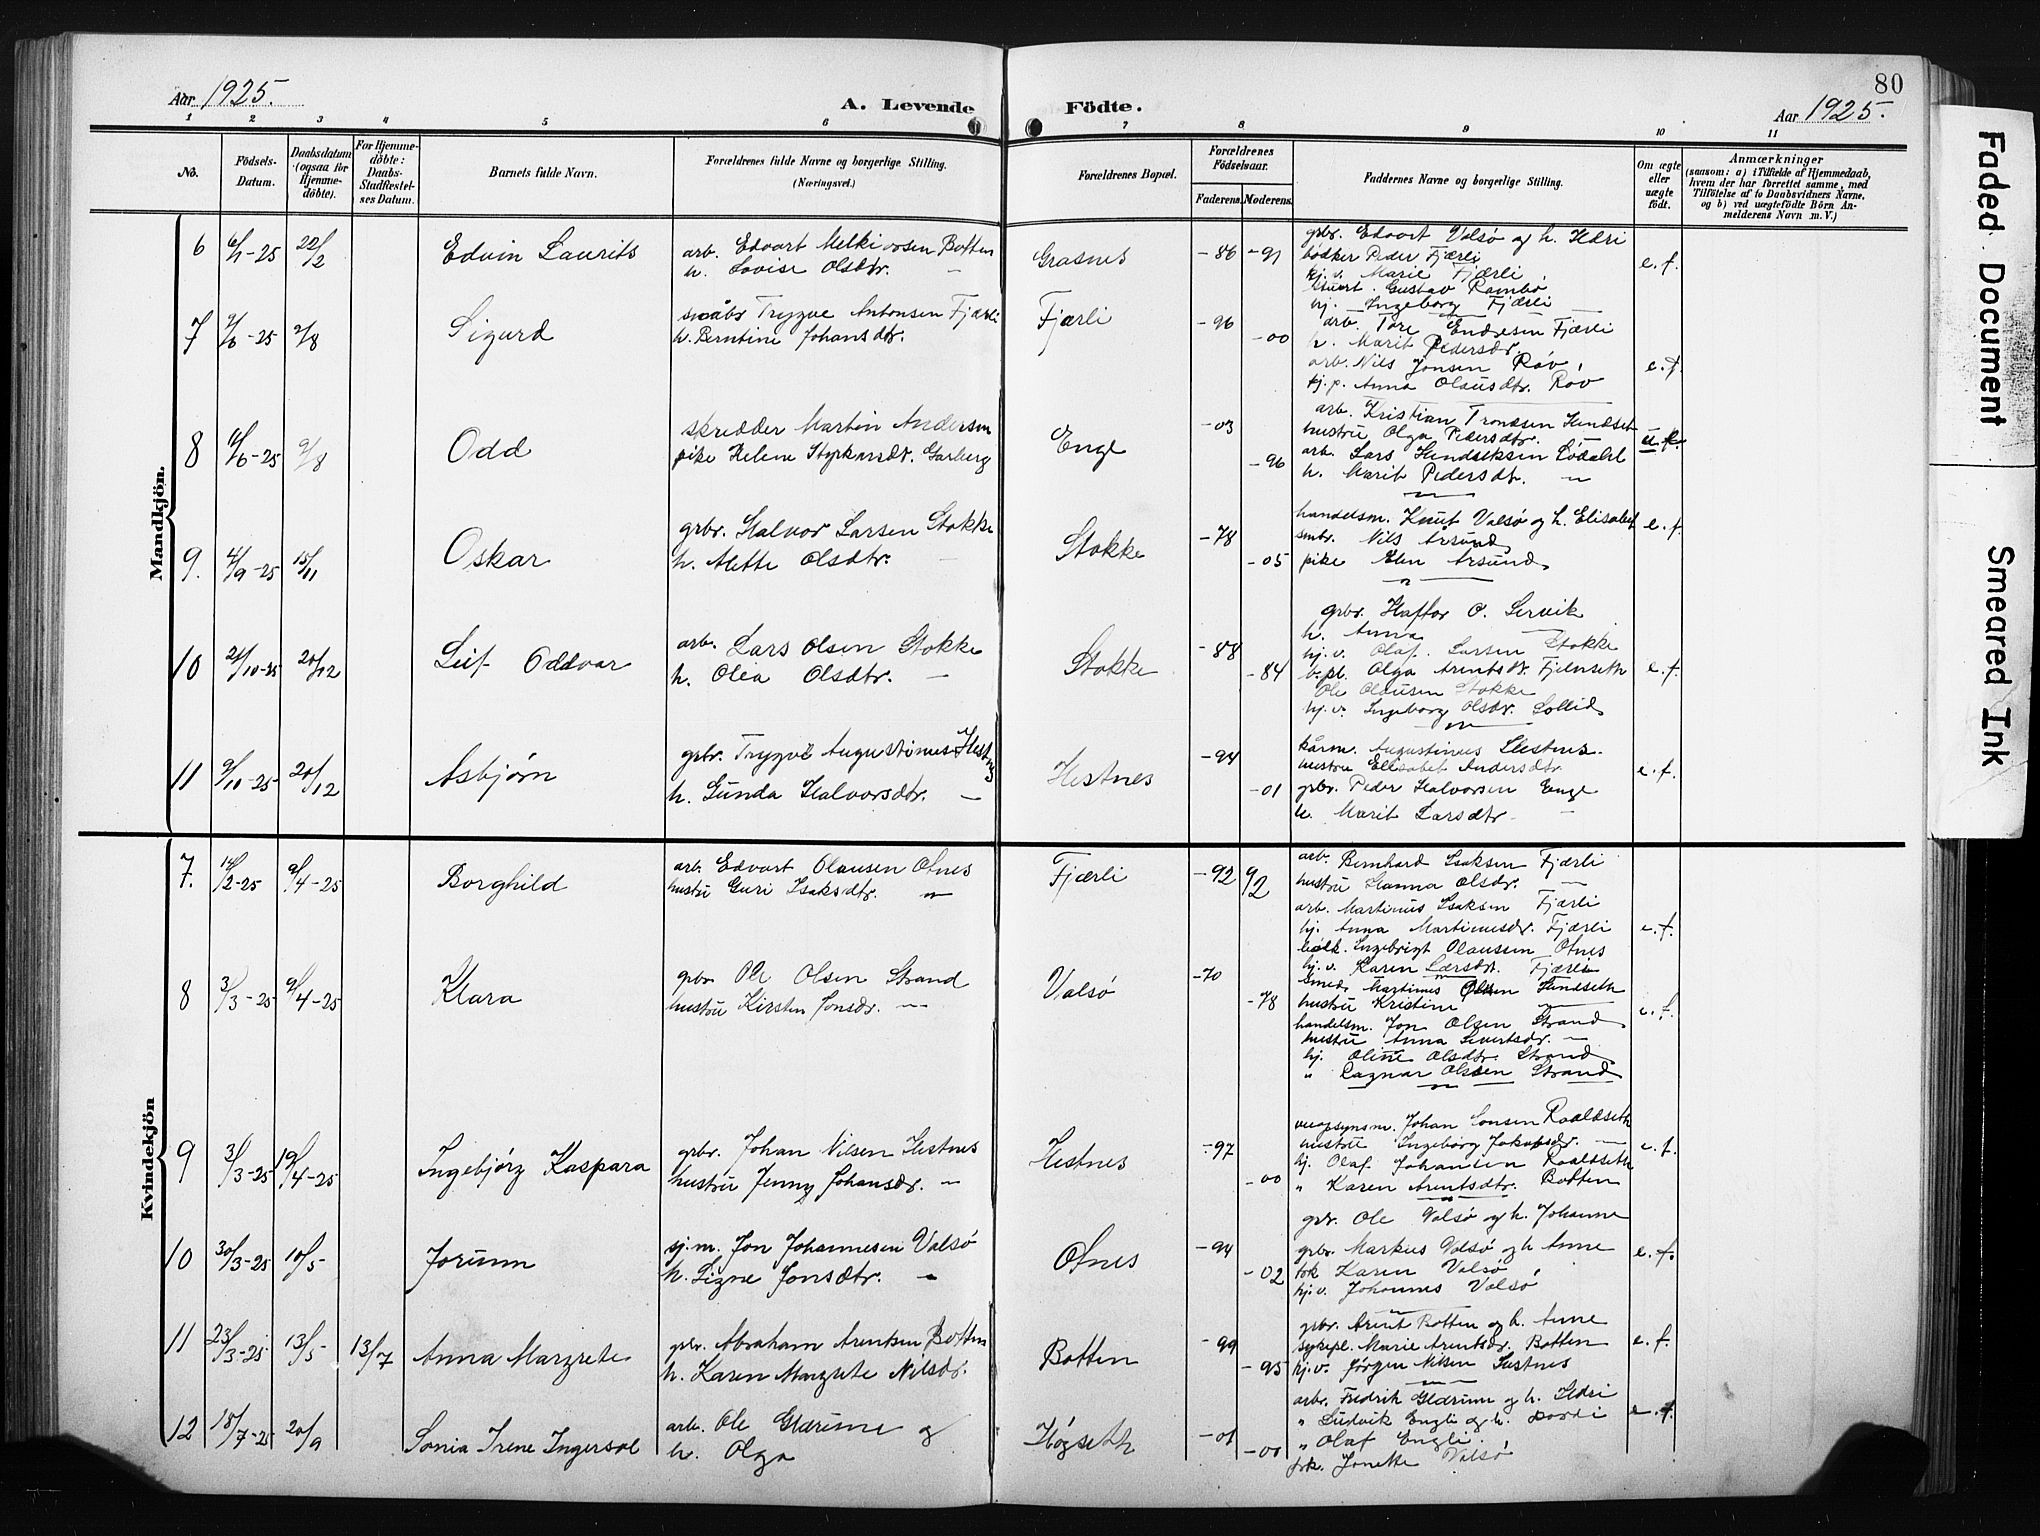 80
Aar 1925.
A. Levende Födte.
Aar 1925.
1 2 3 4 5 6 7 8 9 10 11
No.
Födsels-
Datum.
Daabsdatum
(ogsaa for
Hjemme-
döbte).
For Hjemme-
döbte:
Daabs-
Stadfestel-
ses Datum.
Barnets fulde Navn.
Forældrenes fulde Navne og borgerlige Stilling.
(Næringsvei.)
Forældrenes Bopæl.
Forældrenes
Födselsaar.
Faderens. Moderens.
Faddernes Navne og borgerlige Stilling.
Om ægte
eller
uægte
födt.
Anmærkninger
(saasom: a) i Tilfælde af Hjemmedaab,
hvem der har forrettet samme, med
Tilföielse af to Daabsvidners Navne,
og b) ved uægtefödte Börn An-
melderens Navn m. V.)
Mandkjön.
6 6/1-25 22/2 Edvin Laurits
arb. Edvart Melkiorsen Botten
h. Lovise Olsdtr. —
Grasnes -86 -91
grbr. Edvart Valsø og h. Ildri
bødker Peder Fjærli
hj.v. Marie Fjærli
Gustav Rambø
hj. Ingeborg Fjærli
e.f.
7 2/8 Sigurd
småbr Trygve Antonsen Fjærli
h. Berntine Johansdtr.
Fjærli -96 -00
arb. Tore Endresen Fjærli
h. Marit Pedersdr.
arb. Nils Jonsen Røv
hj.p. Anna Olausdtr. Røv
e.f.
8 9/8 Odd
skredder Martin Andersen
pike Helene Styrkarsdr. Garberg
Enge -03 -96
arb. Kristian Trondsen Hundset
hustru Olga Pedersdtr. —
arb. Lars Hendriksen Lødahl
h. Marit Pedersdtr. —
u.f.
9. 4/9-25 15/11 Oskar
grbr. Halvor Larsen Stokke
h. Alette Olsdtr. —
Stokke -78 -05
handelsm. Knut Valsø og h. Elisabet
smbr. Nils Årsund
pike Elen Årsund
e.f.
10 21/10-25 20/12 Leif Oddvar
arb. Lars Olsen Stokke
h. Olea Olsdtr. —
Stokke -88 -84
grbr. Haftor O. Servik
h. Anna —
hj.v. Olaf Larsen Stokke
b.pl. Olga Arentsdtr. Fjenseth
Ole Olausen Stokke
hj.v. Ingeborg Olsdr. Sollid
e.f.
11 9/11-25 20/12 Asbjørn
grbr. Trygve Augustinus. Hestnes
h. Gunda Halvorsdtr. —
Hestnes -94 -01
kårm. Augustinus Hestnes.
hustru Elisabet Andersdtr.
grbr. Peder Halvorsen Enge
h. Marit Larsdtr. —
e.f.
Kvindekjön
7. 14/2-25 9/4-25 Borghild
arb. Edvart Olausen Otnes
hustru Guri Isaksdtr. —
Fjærli -92 92
arb. Bernhard Isaksen Fjærli
hustru Hanna Olsdr. —
arb. Martinus Isaksen Fjærli
hj. Anna Martinusdr. Fjærli
Ingebrigt Olaussen Otnes
hj.v. Karen Larsdtr. Fjærli
e.f.
8 3/3-25 9/4-25 Klara
grbr Ole Olsen Strand
hustru Kirsten Jonsdr. —
Valsø -70 -78
smed. Martinus Olsen Hundseth
hustru Kristine —
handelsm. Jon Olsen Strand
hustru Anna Sivertsdr. —
hj. Oline Olsdtr. Strand
" Ragnar Olsen Strand
e.f.
9 31/3-25 19/4-25 Ingebjørg Kaspara
grbr. Johan Nilsen Hestnes
hustru Jenny Johansdr. —
Hestnes -97 -00
veiopsynsm. Johan Raaldseth
hustru Ingeborg Jakobsdr. —
hj. Olaf Johansen Raaldseth
" Karen Arentsdtr. Botten
e.f.
10 30/3-25 10/5 Jorunn
sj.m. Jon Johannesen Valsø
h. Signe Jonsdtr. —
Otnes -94 -02
grbr. Ole Valsø og h. Johanne
grbr. Markus Valsø og h Anne
Karen Valsø
hj.v. Johannes Valsø
e.f.
11 23/3-25 13/5 13/7 Anna Margrete
grbr. Abraham Arentsen Botten
h. Karen Margrete Nilsdr.
Botten -99 -95
grbr. Arent Botten og h. Anne
sykepl. Marie Arentsdr. Botten
hj.v. Jørgen Nilsen Hestnes
e.f.
12 18/7-25 20/9 Sonia Irene Ingersol
arb. Ole Glærume og
h. Olga
Høgseth -01 -00
arb. Fredrik Glærum og h. Ildri
" Ludvik Engli og h. Dordi
" Olaf Engli
frk. Jonette Valsø
e.f.
Faded Document
Smeared Ink